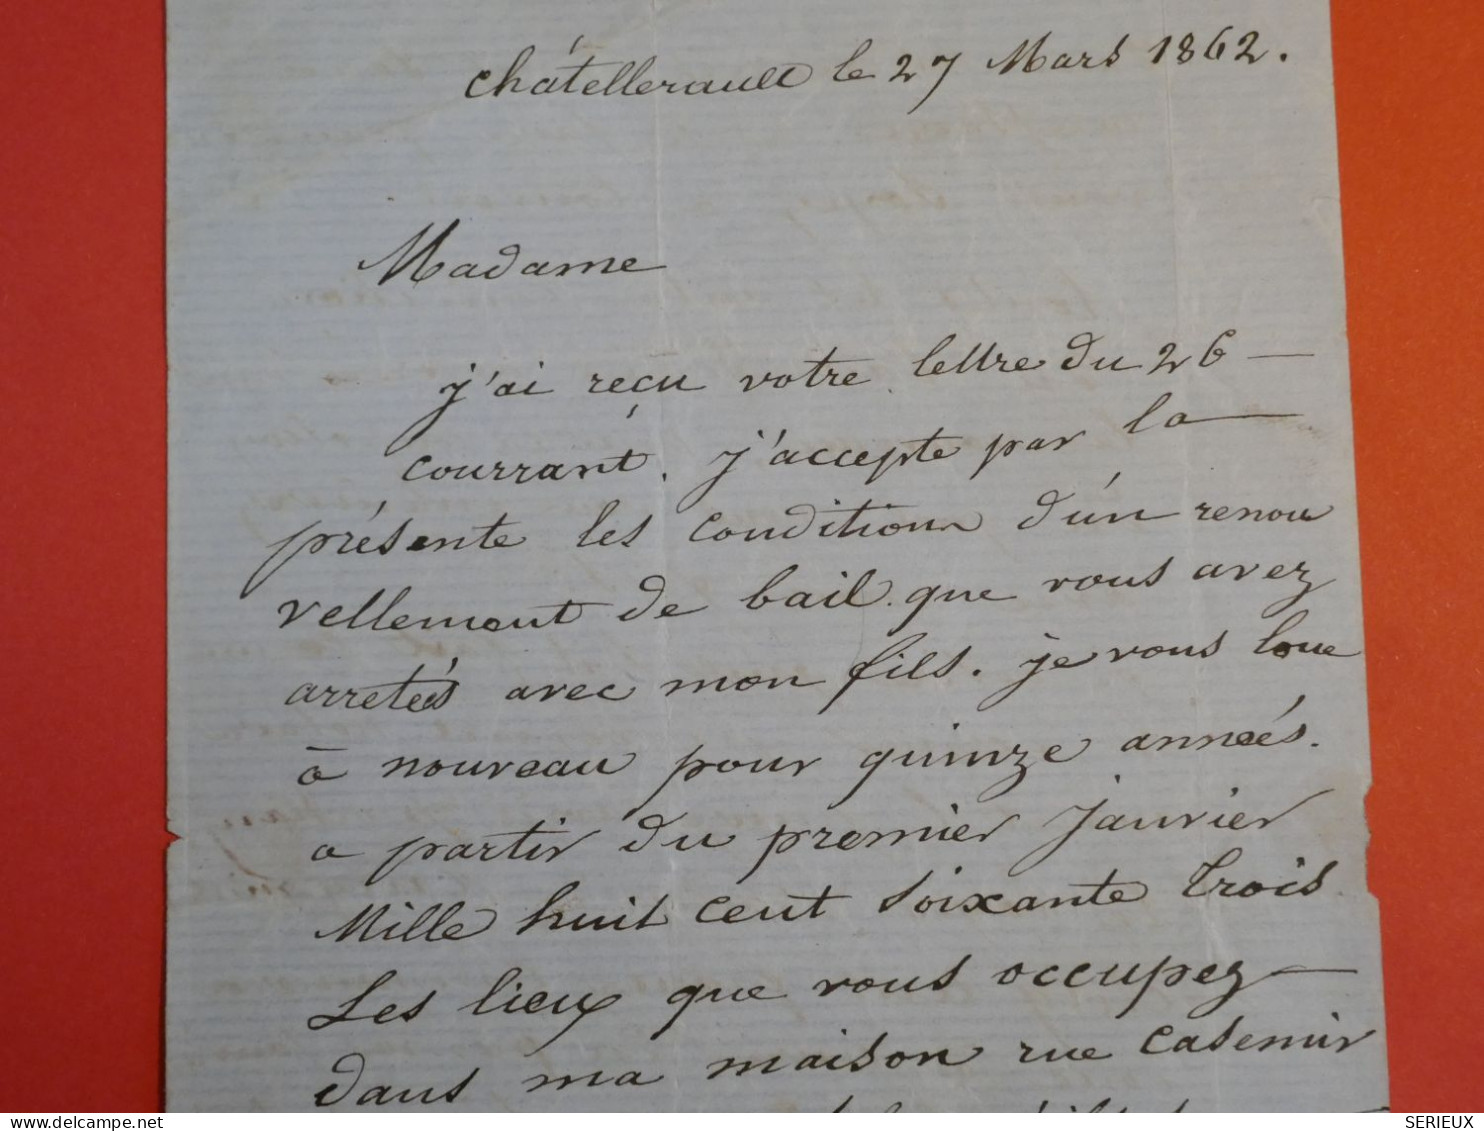 Châtellerault le 27 Mars 1862.
Madame
j'ai reçu votre lettre du 26 —
courrant. j'accepte par la —
présente les condition d'un renou
vellement de bail que vous avez
arretés avec mon fils. je vous loue
à nouveau pour quinze années.
a partir du premier Janvier
Mille huit cent soixante trois.
Les lieux que vous occupez —
dans ma maison rue Casemir
SERIEUX